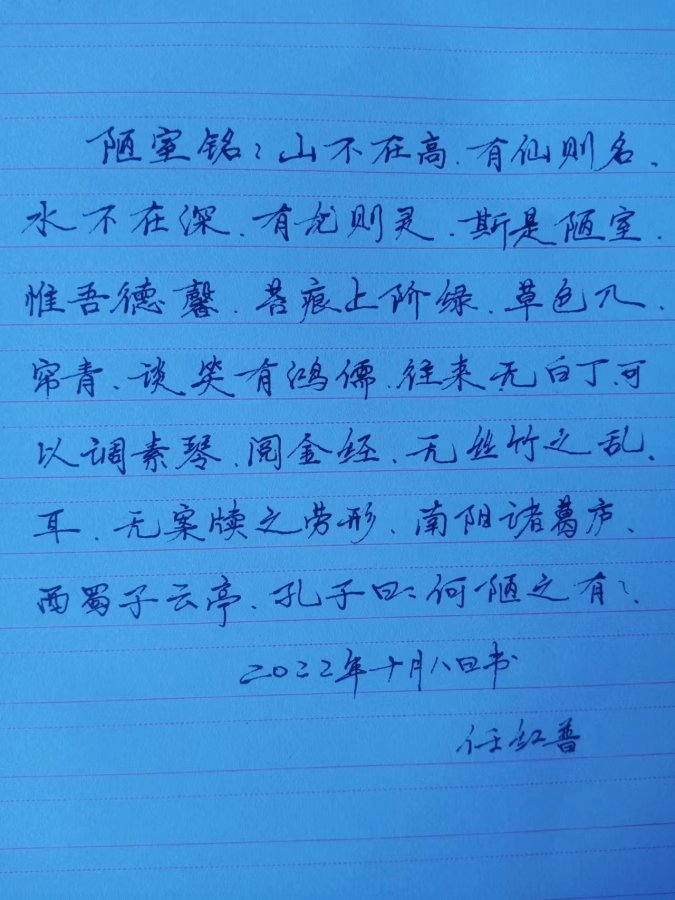 陋室铭:山不在高、有仙则名、
水不在深、有龙则灵、斯是陋室、
惟吾德馨、苔痕上阶绿、草色入、
帘青、谈笑有鸿儒、往来无白丁、可
以调素琴、阅金经、无丝竹之乱、
耳、无案牍之劳形、南阳诸葛庐、
西蜀子云亭、孔子曰:何陋之有?、
2022年十月八日书
任红普